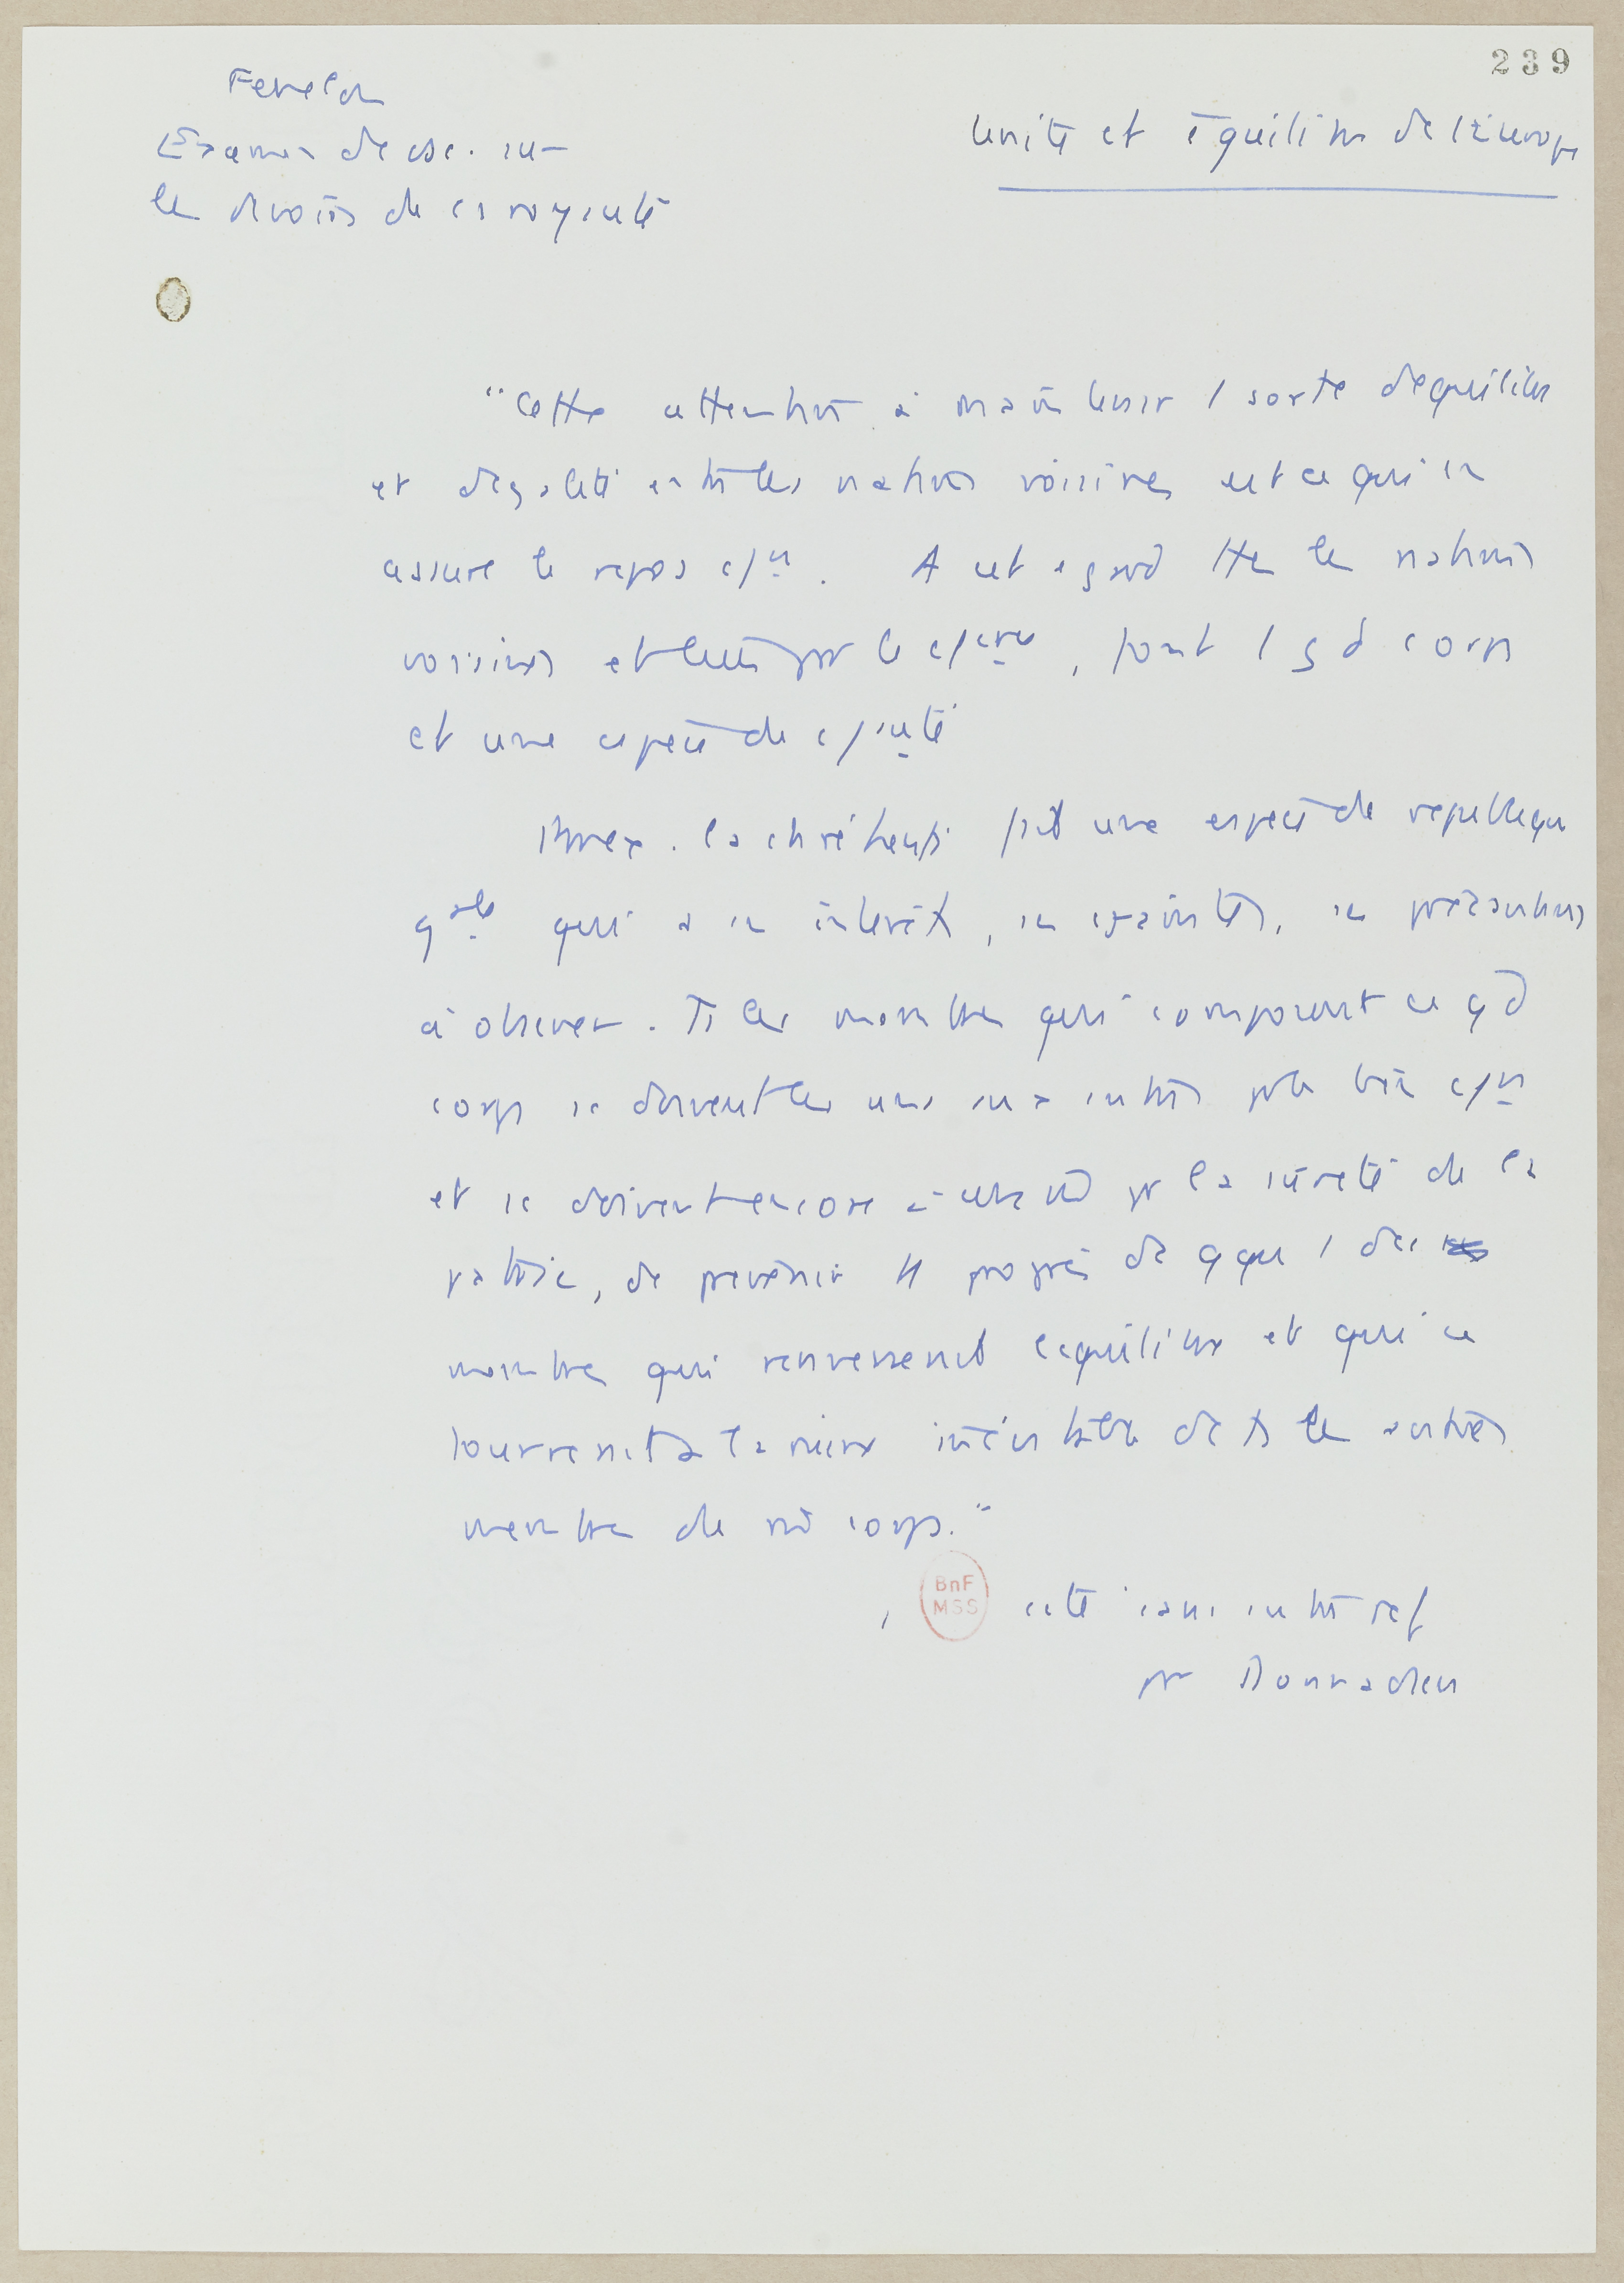 239
Fenelon
Examen de csc. sur
les devoirs de la royauté
Unité et équilibre de l'Europe
"Cette attention à maintenir 1 sorte d'équilibre
et d'égalité entre les nations voisines est ce qui en
assure le repos c/un. A cet égard ttes les nations
voisines et liées par le c/erce, font 1 gd corps
et une espèce de c/auté
Par ex. la chrétienté fait une espèce de republique
gale qui a ses intérêts, ses craintes, ses précautions
à observer. Ts les membres qui composent ce gd
corps se doivent les uns aux autres pr le bien c/un
et se doivent encore à eux m pr la sûreté de la
patrie, de prévenir tt progrès de qque 1 des
membres qui renverserait l'équilibre et qui se
tournerait à la ruine inévitable de ts les autres
membres de m corps."
BnF
MSS
cité sans autre ref
par Donnadieu